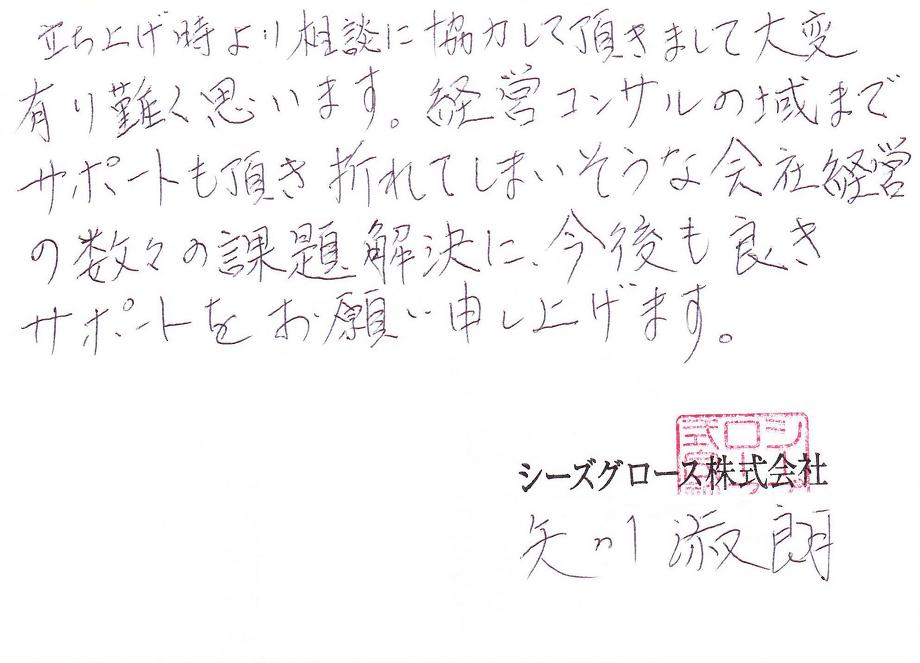 立ち上げ時より相談に協力して頂きまして大変
有り難く思います。経営コンサルの域まで
サポートも頂き折れてしまいそうな会社経営
の数々の課題解決に、今後も良き
サポートをお願い申し上げます。
シーズグロース株式会社
矢川 淑朗